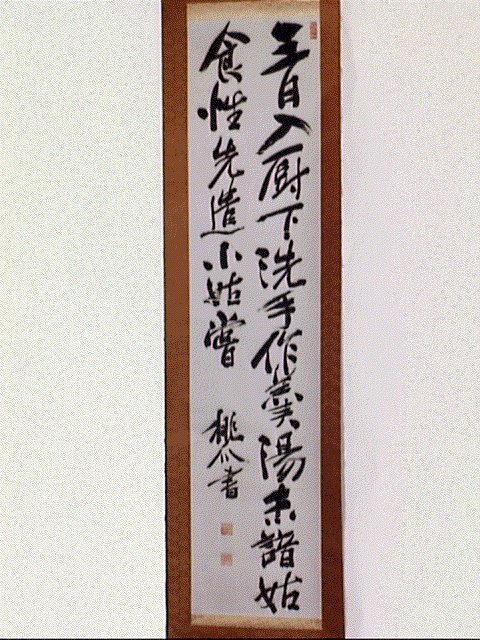 三日入厨下洗手作羹湯未諳姑
食性先遣小姑嘗
桃介書